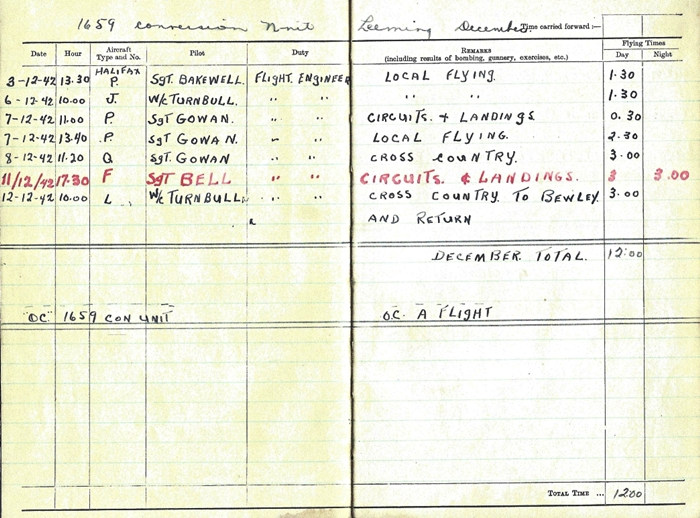 1659 Conversion Unit Leeming December. Time carried forward :—
Date Hour Aircraft Type and No. Pilot Duty Remarks (including results of bombing, gunnery, exercises, etc.) Flying Times Day Night
3-12-42 13.30 HALIFAX P. SGT. BAKEWELL. FLIGHT. ENGINEER LOCAL FLYING. 1.30
6-12-42 10.00 J. W/C TURNBULL. " " " " 1.30
7-12-42 11.00 P. SGT GOWAN. " " CIRCUITS. & LANDINGS. 0.30
7-12-42 13.40 P. SGT GOWAN. " " LOCAL FLYING. 2.30
8-12-42 11.20 Q SGT. GOWAN " " CROSS COUNTRY. 3.00
11/12/42 17.30 F SGT BELL " " CIRCUITS. & LANDINGS. 3 3.00
12-12-42 10.00 L W/C TURNBULL. " " CROSS COUNTRY. TO BEWLEY. 3.00
AND RETURN
DECEMBER. TOTAL. 12:00
O.C. 1659 CON UNIT O.C. A FLIGHT
Total Time ... 1200